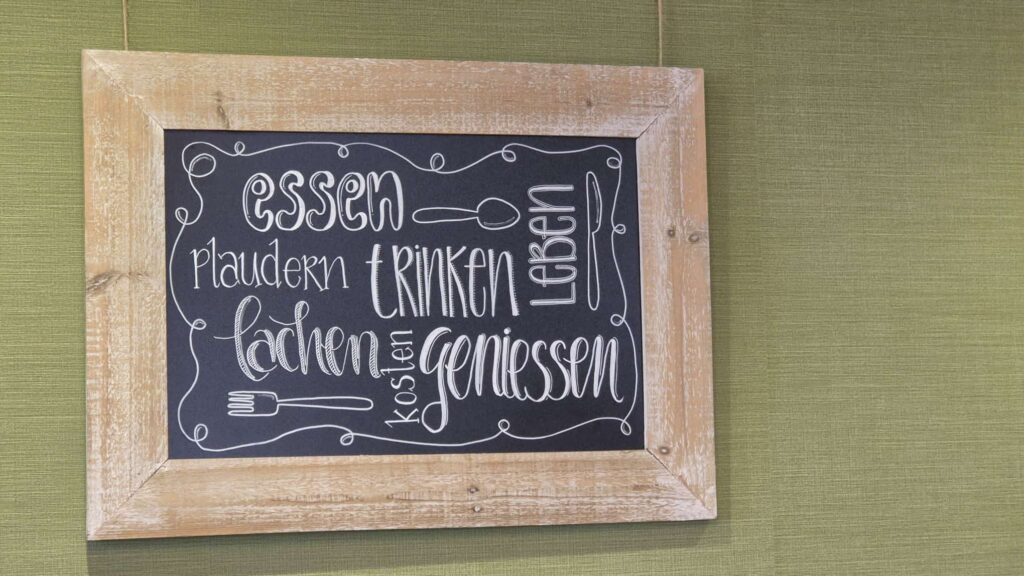 essen
plaudern trinken
Leben
lachen
kosten
geniessen